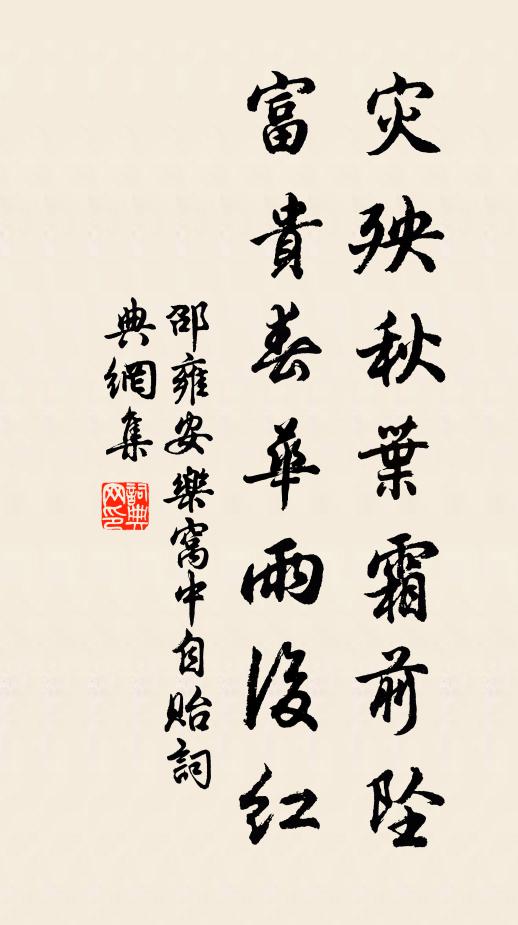 灾殃秋葉霜前坠
富貴春華雨後红
邵雍安樂窩中自貽詞
典網集
詞典網印